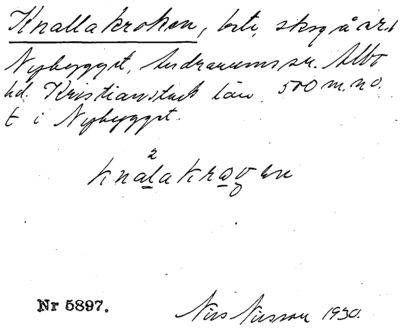 Knallakroken, bete, skog å art
Nybygget, Andrarums sn. Albo
hd. Kristianstads län. 500 m. n. o.
t i Nybygget.
2
knalakrogen
Nr 5897.
Nils Nilsson 1930.